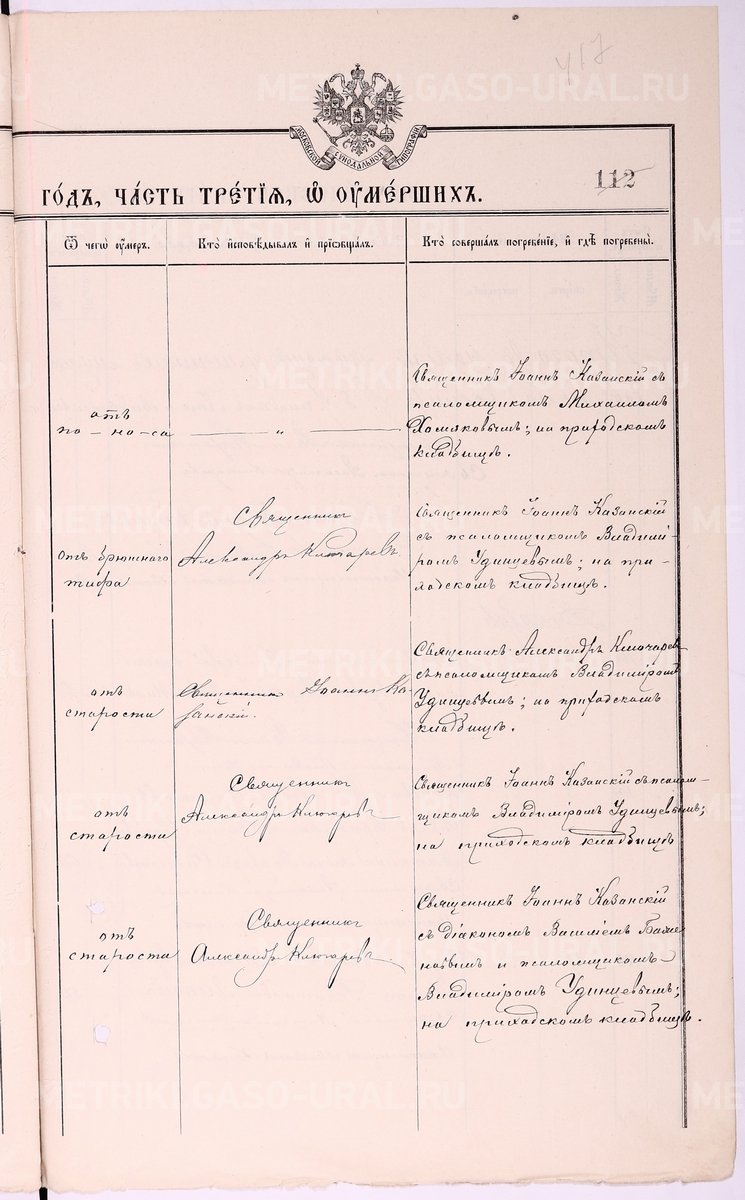 417
METRIKI.GASO-URAL.RU
МОСКОВСКОЙ СѴНОДАЛЬНОЙ ТИПОГРАФІИ
112
ГОДЪ, ЧАСТЬ ТРЕТІЯ, Ѡ ОУМЕРШИХЪ.
Ѿ чегѡ оумеръ.
Кто исповѣдывалъ и пріѡбщалъ.
Кто совершалъ погребеніе, и гдѣ погребены.
отъ
по-но-са
— „ —
Священникъ Іоаннъ Казанскій съ
псаломщикомъ Михаиломъ
Хомяковымъ; на приходскомъ
кладбищѣ.
отъ брюшного
тифа
Священникъ
Александръ Ключаревъ
Священникъ Іоаннъ Казанскій
съ псаломщикомъ Владимі-
ромъ Удинцевымъ; на при-
ходскомъ кладбищѣ.
отъ
старости
Священникъ Іоаннъ Ка-
занскій.
Священникъ Александръ Ключаревъ
съ псаломщикомъ Владиміромъ
Удинцевымъ; на приходскомъ
кладбищѣ.
отъ
старости
Священникъ
Александръ Ключаревъ
Священникъ Іоаннъ Казанскій съ псалом-
щикомъ Владиміромъ Удинцевымъ;
на приходскомъ кладбищѣ
отъ
старости
Священникъ
Александръ Ключаревъ
Священникъ Іоаннъ Казанскій
съ діакономъ Василіемъ Баже
новымъ и псаломщикомъ
Владиміромъ Удинцевымъ;
на приходскомъ кладбищѣ.
METRIKI.GASO-URAL.RU